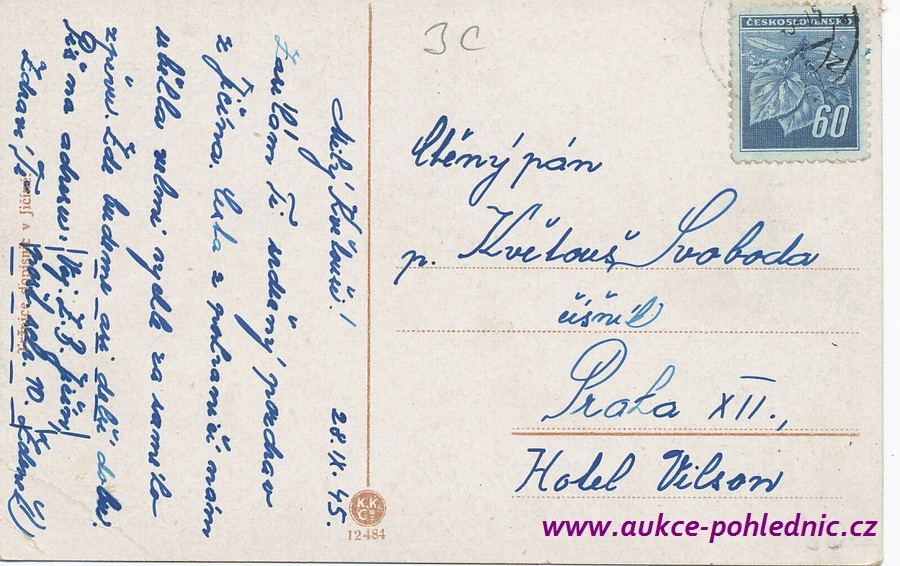 3C
ČESKOSLOVENSKO
60
Milý Květouši!
28. IX. 45.
Zasílám Ti srdečný pozdrav
z Jičína. Cesta z pohraničí nám
uběhla velmi rychle za samého
zpěvu. Zde budeme asi delší dobu.
Piš na adresu: Voj. Z. P. Jičín
pošt. sch. 10.
Zdraví Tě Zdeněk
dopisnic v Jičíně
Ctěný pán
p. Květouš Svoboda
číšník
Praha XII.,
Hotel Vilson
K.K.
Co
12484
www.aukce-pohlednic.cz